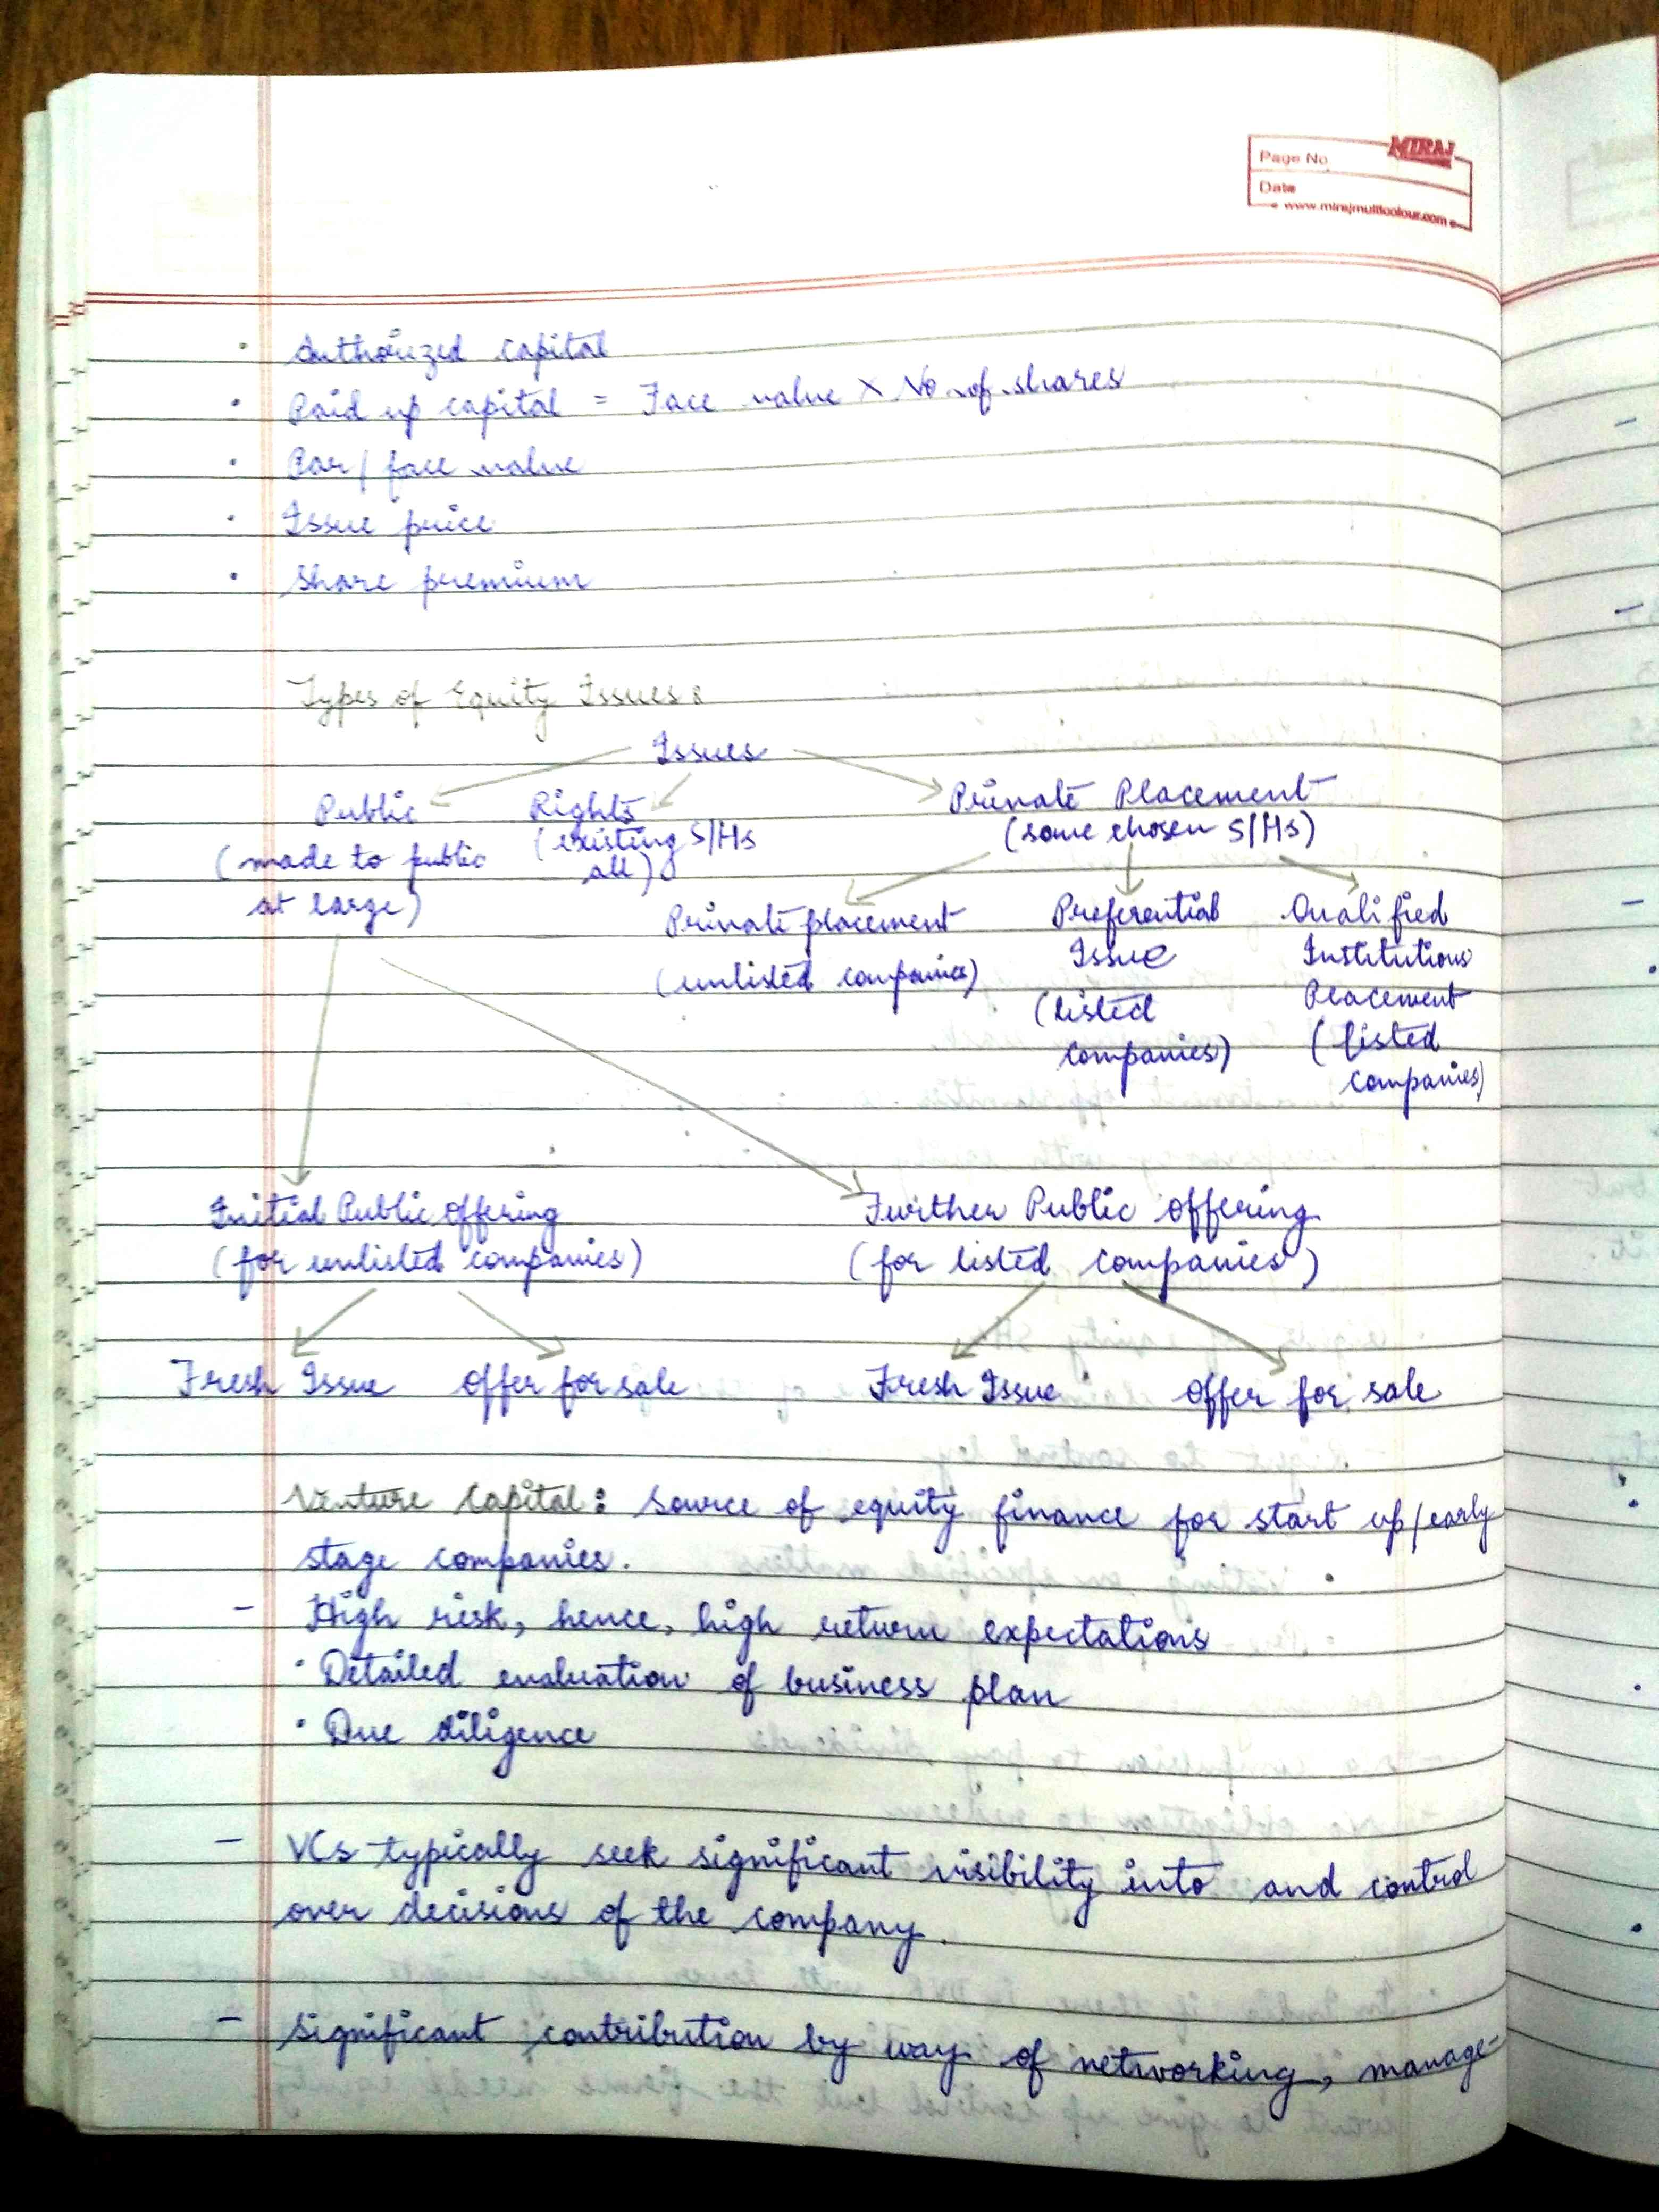 MIRAJ
Page No.
Date
www.mirajmulticolour.com
• Authorized capital
• Paid up capital = Face value × No of shares
• Par/face value
• Issue price
• Share premium
Types of Equity Issues:
Issues
Public
(made to public
at large)
Rights
(existing S/Hs
all)
Private Placement
(some chosen S/Hs)
Private placement
(unlisted companies)
Preferential
Issue
(listed
companies)
Qualified
Institutions
Placement
(listed
companies)
Initial Public Offering
(for unlisted companies)
Further Public Offering
(for listed companies)
Fresh Issue Offer for sale Fresh Issue Offer for sale
Venture Capital: Source of equity finance for start up/early
stage companies.
- High risk, hence, high return expectations
• Detailed evaluation of business plan
• Due diligence
- VCs typically seek significant visibility into and control
over decisions of the company.
- Significant contribution by way of networking, manage-